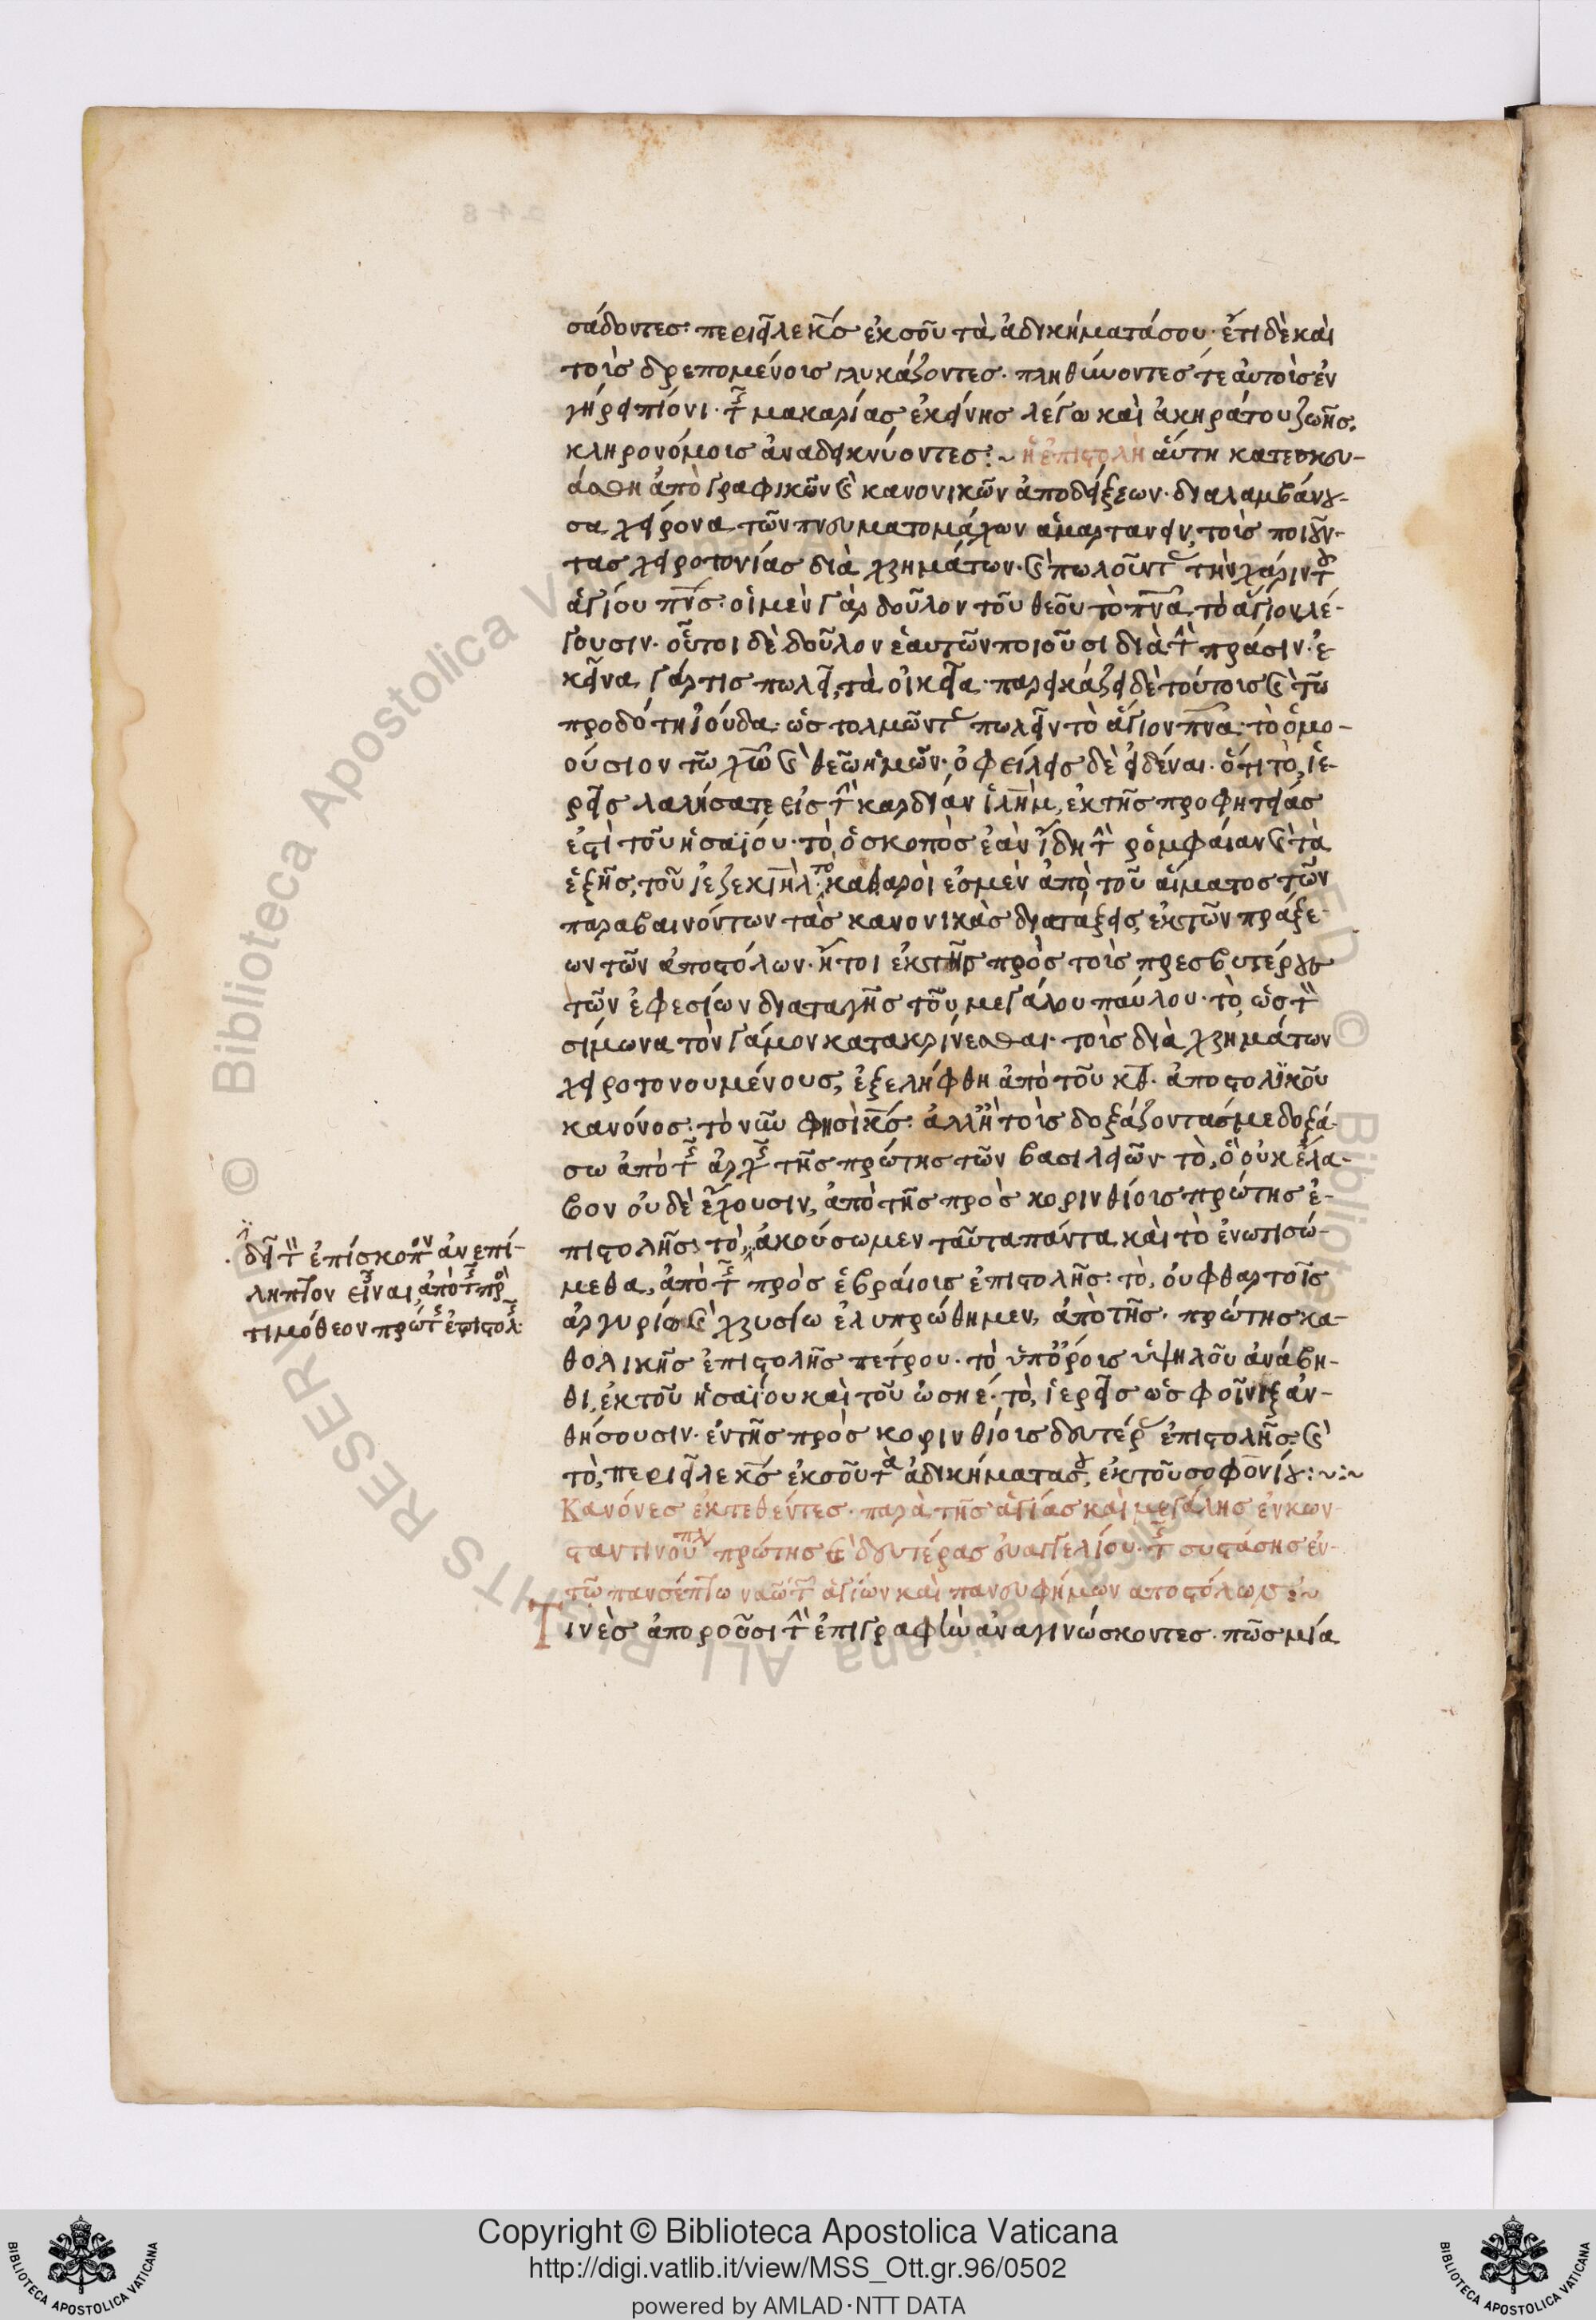 σάδοντες· περιεῖλε κ̅ς̅ ἐκ σοῦ τὰ ἀδικήματά σου· ἔτι δὲ καὶ
τοῖς δρεπομένοις γλυκάζοντες· πληθύνοντές τε αὐτοὺς ἐν
γήρει πίονι· τῆς μακαρίας ἐκείνης λέγω καὶ ἀκηράτου ζωῆς,
κληρονόμοις ἀναδεικνύοντες:~ ἡ ἐπιστολὴ αὕτη κατεσκευ-
άσθη ἀπὸ γραφικῶν καὶ κανονικῶν ἀποδείξεων· διαλαμβάνου-
σα χείρονα τῶν πνευματομάχων ἁμαρτάνειν, τοὺς ποιοῦν-
τας χειροτονίας διὰ χρημάτων· καὶ πωλοῦντας τὴν χάριν τοῦ
ἁγίου πν̅ς̅· οἱ μὲν γὰρ δοῦλον τοῦ θεοῦ τὸ πν̅α̅ τὸ ἅγιον λέ-
γουσιν· οὗτοι δὲ δοῦλον ἑαυτῶν ποιοῦσι διὰ τὴν πράσιν· ἐ-
κεῖνα γάρ τις πωλεῖ, τὰ οἰκεῖα· παρεικάζει δὲ τούτοις καὶ τῶ
προδότη ἰούδα· ὡς τολμῶντας πωλεῖν τὸ ἅγιον πν̅α̅· τὸ ὁμο-
ούσιον τῶ χ̅ω̅ καὶ θεῶ ἡμῶν· ὀφείλεις δὲ εἰδέναι· ὅτι τὸ, ἱε-
ρεῖς λαλήσατε εἰς τὴν καρδίαν ἱλη̅μ, ἐκ τῆς προφητείας
ἐστὶ τοῦ ἡσαΐου· τὸ, ὁ σκοπὸς ἐὰν ἴδη τὴν ῥομφαίαν καὶ τὰ
ἑξῆς, τοῦ ἰεζεκιήλ· τὸ καθαροὶ ἐσμὲν ἀπὸ τοῦ αἵματος τῶν
παραβαινόντων τὰς κανονικὰς διατάξεις, ἐκ τῶν πράξε-
ων τῶν ἀποστόλων· ἤτοι ἐκ τῆς πρὸς τοὺς πρεσβυτέρους
τῶν ἐφεσίων διαταγῆς τοῦ μεγάλου παύλου· τὸ, ὡς τὸν
σίμωνα τὸν γάμον κατακρίνεσθαι· τοὺς διὰ χρημάτων
χειροτονουμένους, ἐξελήφθη ἀπὸ τοῦ κ̅θ̅· ἀποστολικοῦ
κανόνος· τὸ νῦν φησὶ κ̅ς̅· ἀλλ' ἢ τοὺς δοξάζοντάς με δοξά-
σω ἀπὸ τῆς ἀρχῆς τῆς πρώτης τῶν βασιλειῶν· τὸ, ὃ οὐκ ἔλα-
βον οὐδὲ ἔχουσιν, ἀπὸ τῆς πρὸς κορινθίους πρώτης ἐ-
πιστολῆς· τὸ, ἀκούσωμεν ταῦτα πάντα καὶ τὸ ἐνωτισώ-
μεθα, ἀπὸ τῆς πρὸς ἑβραίοις ἐπιστολῆς· τὸ, οὐ φθαρτοῖς
ἀργυρίω καὶ χρυσίω ἐλυτρώθημεν, ἀπὸ τῆς· πρώτης κα-
θολικῆς ἐπιστολῆς πέτρου· τὸ ὑπ' ὄροις ὑψηλοῦ ἀνάβη-
θι, ἐκ τοῦ ἡσαΐου καὶ τοῦ ὠσηέ· τὸ, ἱερεῖς ὡς φοῖνιξ ἀν-
θήσουσιν· ἐν τῆς πρὸς κορινθίοις δευτέρας ἐπιστολῆς· καὶ
τὸ, περιεῖλε κ̅ς̅ ἐκ σοῦ τὰ ἀδικήματά σου, ἐκ τοῦ σοφονίου:~:~
Κανόνες ἐκτεθέντες· παρὰ τῆς ἁγίας καὶ μεγάλης ἐν κων-
σταντινουπλ πρώτης καὶ δευτέρας συναγγελίου· τῆς συστάσης ἐν
τῶ πανσέπτω ναῶ τῶν ἁγίων καὶ πανευφήμων ἀποστόλων:~
Τινὲς ἀποροῦσι τὴν ἐπιγραφὴν ἀναγινώσκοντες· πῶς μία
δεῖ τὸν ἐπίσκοπον ἀνεπί-
ληπτον εἶναι, ἀπὸ τῆς πρὸς
τιμόθεον πρώτης ἐπιστολῆς
Copyright © Biblioteca Apostolica Vaticana
http://digi.vatlib.it/view/MSS_Ott.gr.96/0502
powered by AMLAD·NTT DATA